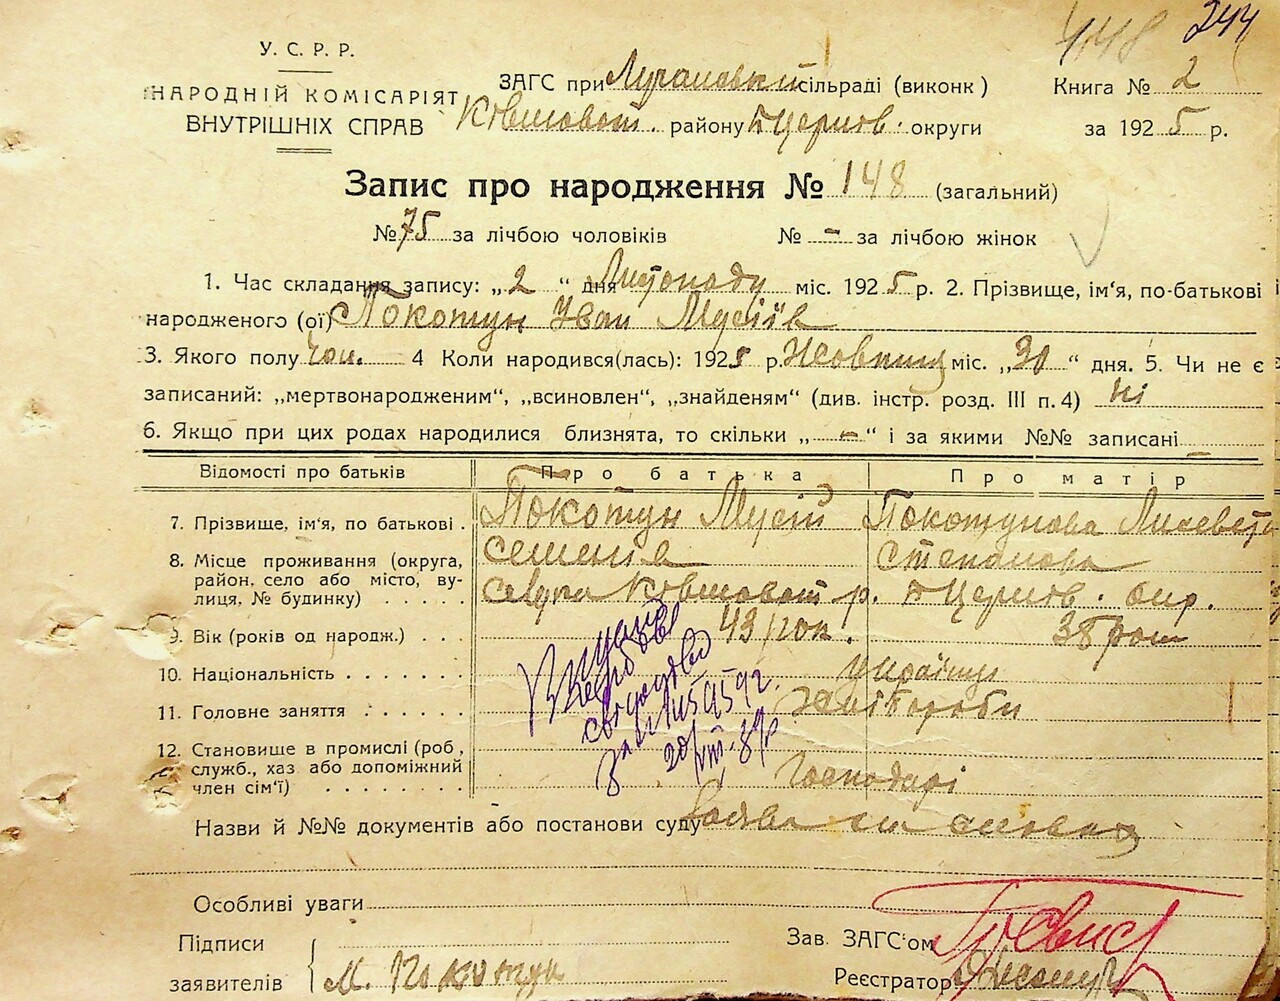 448 244
У. С. Р. Р.
НАРОДНІЙ КОМІСАРІЯТ
ВНУТРІШНІХ СПРАВ
ЗАГС при Лучанській сільраді (виконк)
Ківшоват. району Б Церків. округи
Книга № 2
за 1925 р.
Запис про народження № 148 (загальний)
№ 75 за лічбою чоловіків № - за лічбою жінок
1. Час складання запису: „2“ дня Листопаду міс. 1925 р. 2. Прізвище, ім'я, по-батькові
народженого (ої) Покотун Іван Мусіїв
3. Якого полу чол. 4 Коли народився(лась): 1925 р. Жовтня міс. „30“ дня. 5. Чи не є
записаний: „мертвонародженим“, „всиновлен“, „знайденям“ (див. інстр. розд. III п. 4) ні
6. Якщо при цих родах народилися близнята, то скільки „-“ і за якими №№ записані -
Відомості про батьків Про батька Про матір
7. Прізвище, ім'я, по батькові. Покотун Мусій Покотунова Лисевета
8. Місце проживання (округа, район, село або місто, вулиця, № будинку) Степанова
р. Б Церків. окр.
9. Вік (років од народж.) 43 рок. 38 рок
10. Національність українці
11. Головне заняття Хлібороби
12. Становище в промислі (роб, служб., хаз або допоміжний член сім'ї) Господарі
20/VIII-39р
Назви й №№ документів або постанови суду заява на словах
Особливі уваги
Підписи
заявителів М. Покотун
Зав. ЗАГС'ом
Реєстратор